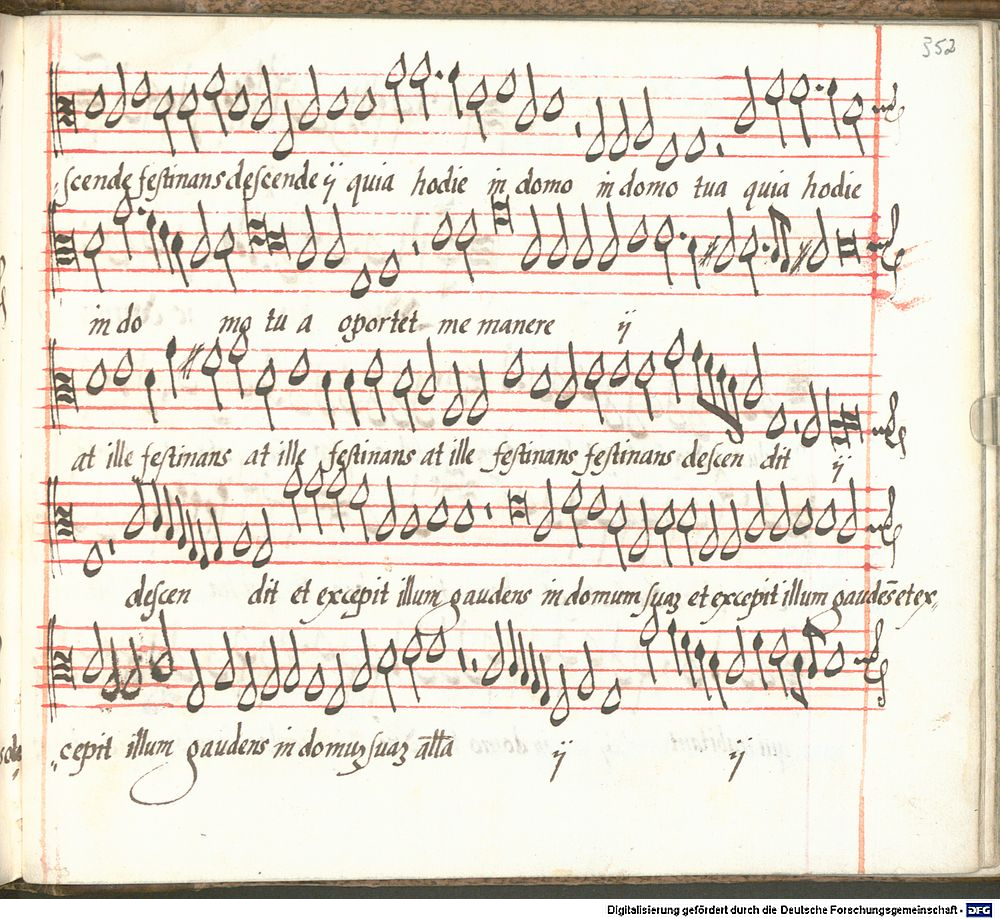 352
scende festinans descende ij quia hodie in domo in domo tua quia hodie
in do mo tu a oportet me manere ij
at ille festinans at ille festinans at ille festinans festinans descen dit ij
descen dit et excepit illum gaudens in domum suaʒ et excepit illum gaudēs et ex„
„cepit illum gaudens in domuʒ suaʒ all̄a ij ij
Digitalisierung gefördert durch die Deutsche Forschungsgemeinschaft - DFG